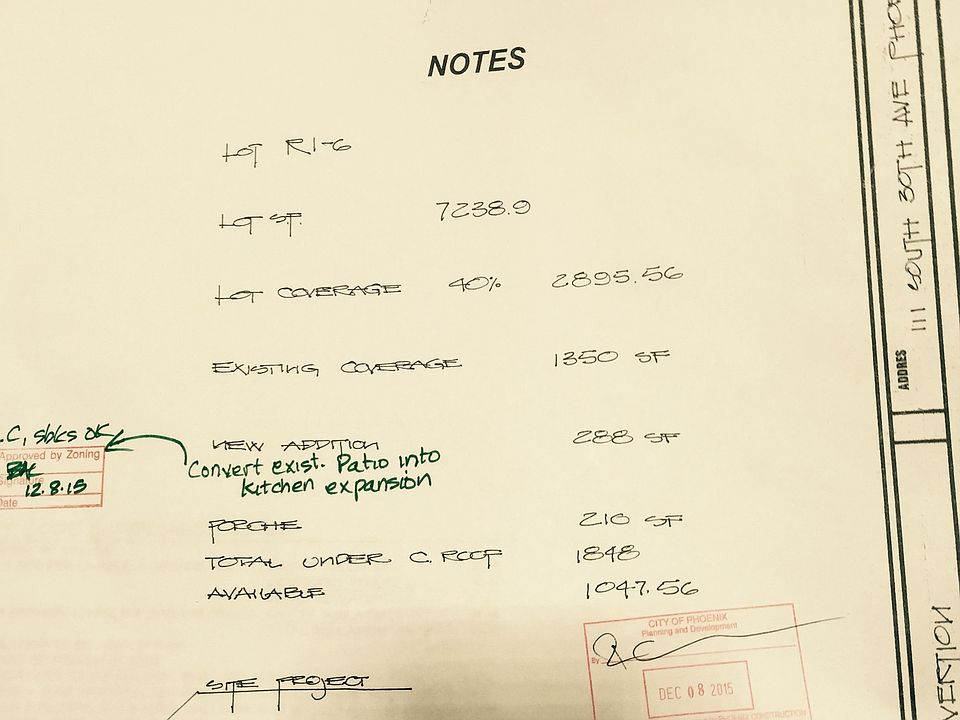 NOTES
LOT R1-6
LOT S.F. 7238.9
LOT COVERAGE 40% 2895.56
EXISTING COVERAGE 1350 SF
NEW ADDITION 288 SF
Convert exist. Patio into
kitchen expansion
.C, sbks ok
Approved by Zoning
Signature
12.8.15
Date
PORCHE 210 SF
TOTAL UNDER C. ROOF 1848
AVAILABLE 1047.56
SITE PROJECT
CITY OF PHOENIX
Planning and Development
By
DEC 08 2015
PHOENIX CONSTRUCTION
ADDRES
111 SOUTH 30TH AVE PHO
VERTION